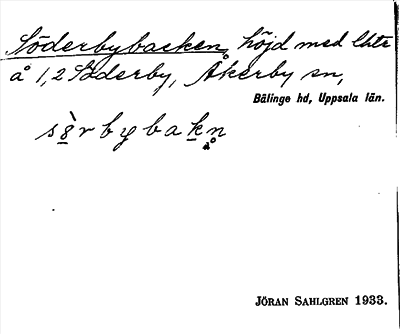 Söderbybacken, höjd med lht:er
å 1,2 Söderby, Åkerby sn,
Bälinge hd, Uppsala län.
sö̀rbybakn̥
JÖRAN SAHLGREN 1933.